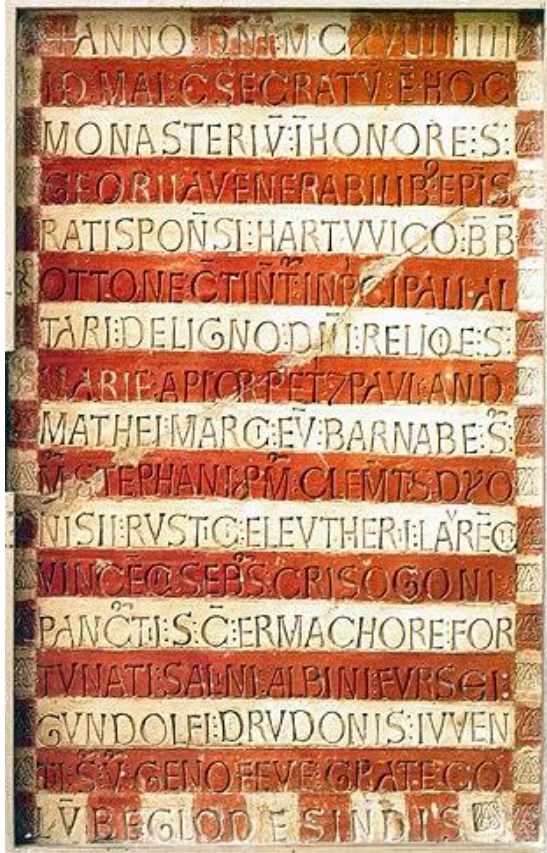 +ANNO:DN̄I:M:C:XVIIII:IIII
ID:MAI:C̄SECRATV̄:Ē:HOC
MONASTERIV̄:Ī:HONORE:S:
GEORII:A:VENERABILIB9:EPĪS
RATISPON̄SI:HARTVVICO:B̄B̄
OTTONE:C̄TIN̄T:IN:PCIPALI:AL
TARI:DE:LIGNO:DN̄I:RELIQE:S:
MARIE:APLOR:PET:7PAVLI:AND
MATHEI:MARC:EV̄:BARNABE:S
M:STEPHANI:PM:CLEM̄TIS:DYO
NISII:RVSTICI:ELEVTHERI:LAVRĒCII
VINCĒCII:SEB:S:CRISOGONI
PANC̄TII:S:C̄:ERMACHORE:FOR
TVNATI:SALNI:ALBINI:FVRSEI:
GVNDOLFI:DRVDONIS:IVVEN
TI:S:V:GENOFEVE:GRATE:CO
LV̄BE:GLODESINDIS